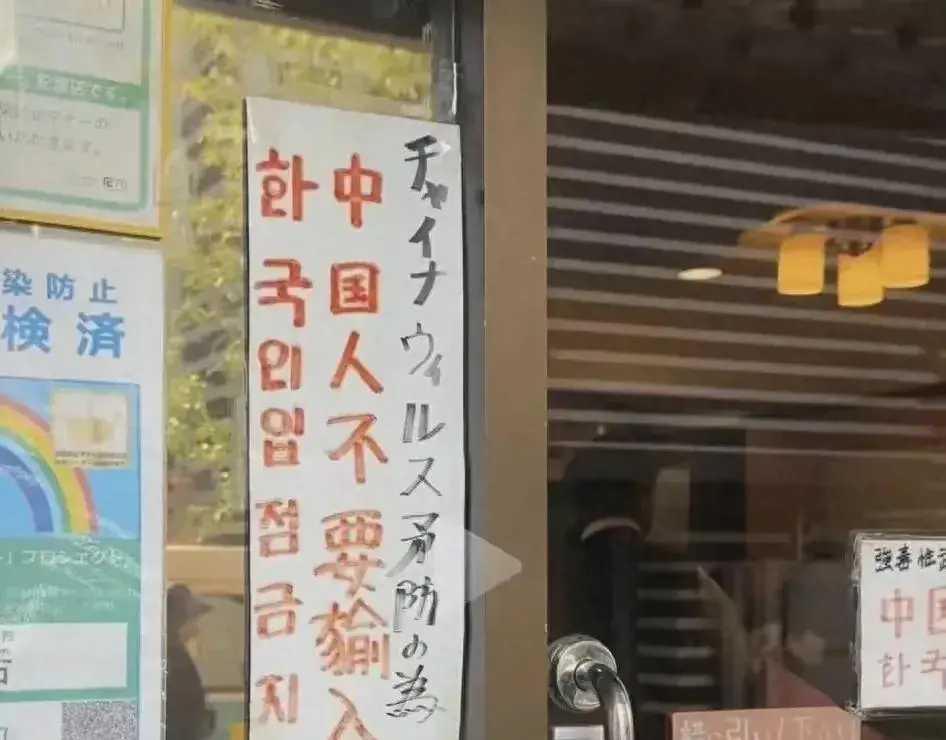 チャイナウィルス矛防の為
中国人不要輸入
한국인입점금지
染防止
検済
強毒性
中
한